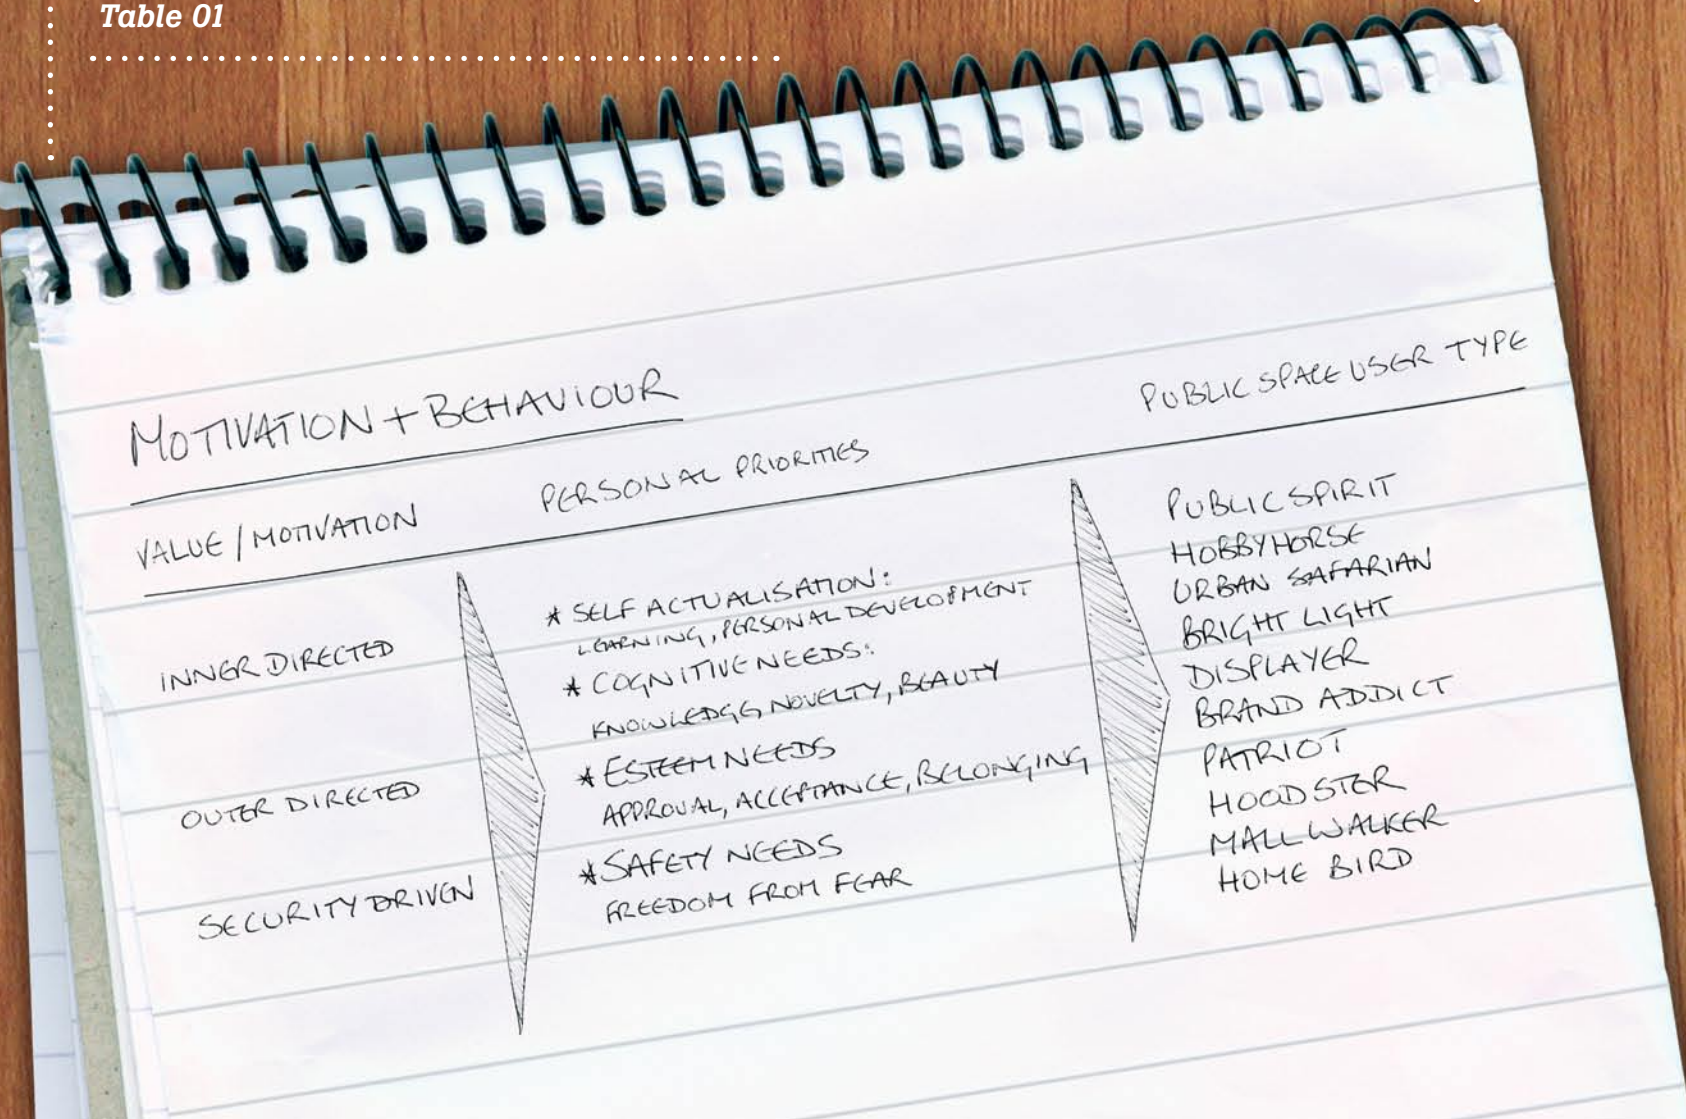 Table 01
MOTIVATION + BEHAVIOUR
VALUE / MOTIVATION
PERSONAL PRIORITIES
PUBLIC SPACE USER TYPE
INNER DIRECTED
OUTER DIRECTED
SECURITY DRIVEN
* SELF ACTUALISATION:
LEARNING, PERSONAL DEVELOPMENT
* COGNITIVE NEEDS:
KNOWLEDGE, NOVELTY, BEAUTY
* ESTEEM NEEDS
APPROVAL, ACCEPTANCE, BELONGING
* SAFETY NEEDS
FREEDOM FROM FEAR
PUBLIC SPIRIT
HOBBYHORSE
URBAN SAFARIAN
BRIGHT LIGHT
DISPLAYER
BRAND ADDICT
PATRIOT
HOODSTER
MALLWALKER
HOME BIRD